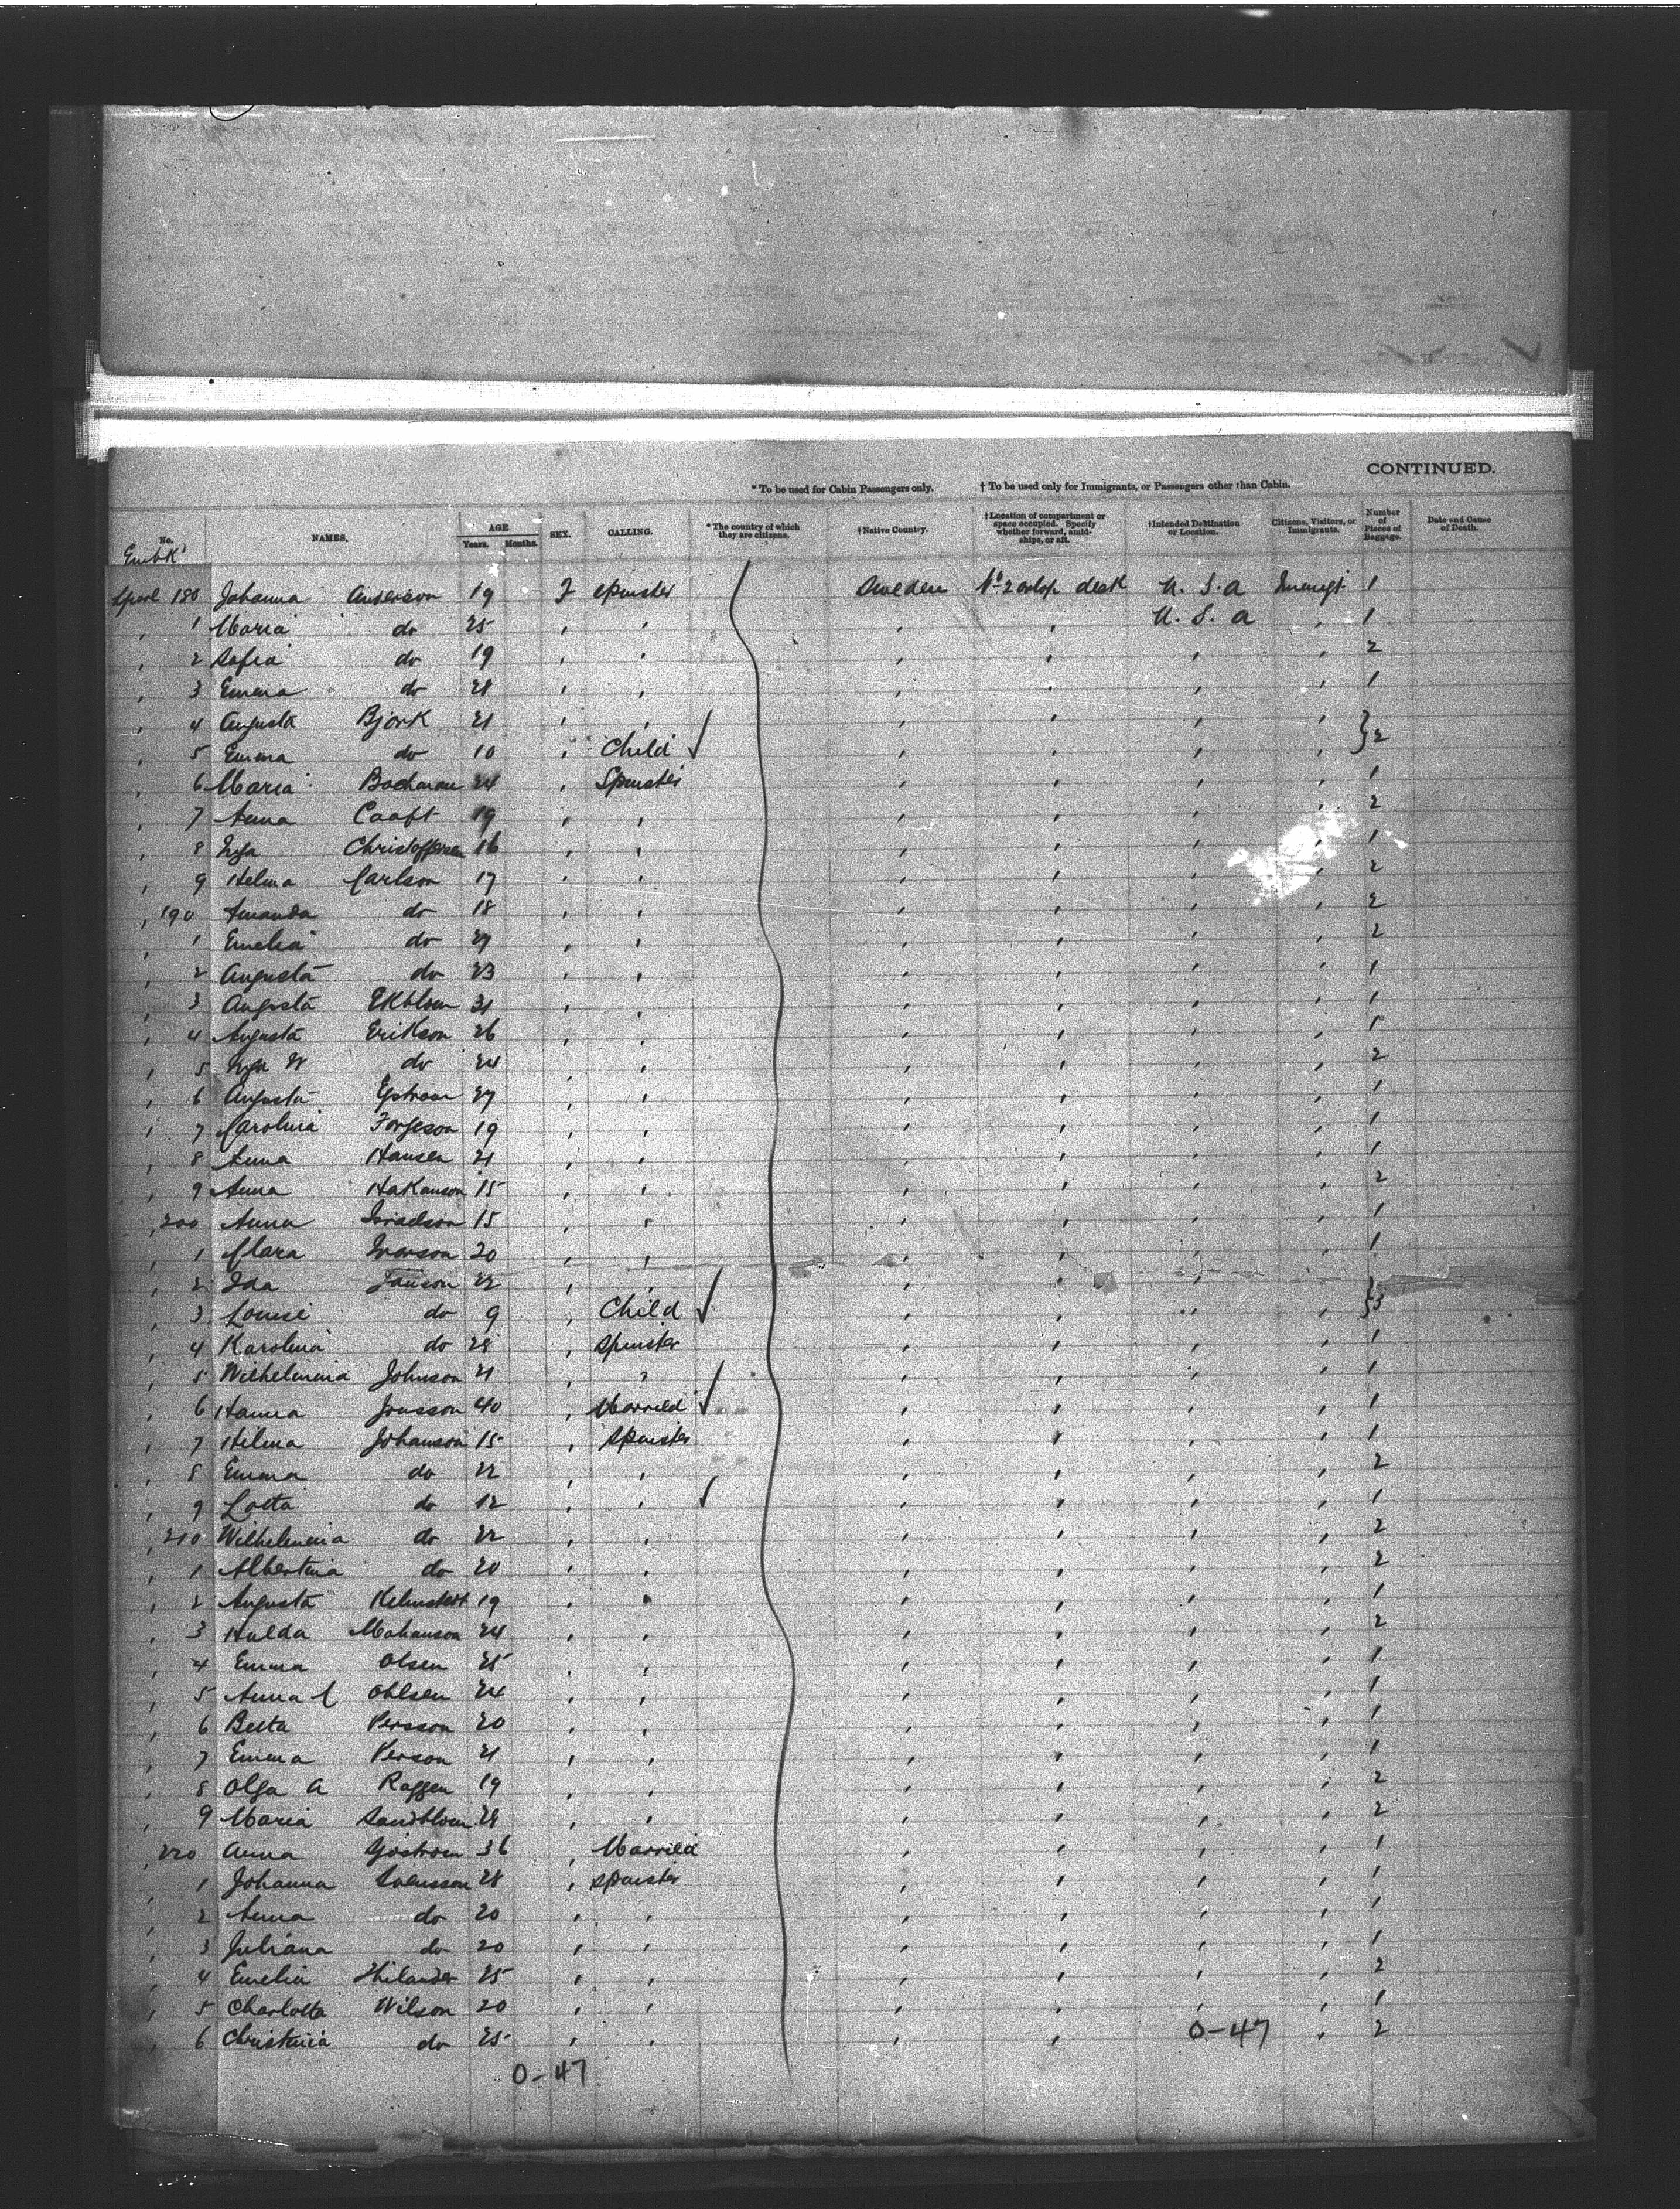 CONTINUED.
* To be used for Cabin Passengers only. † To be used only for Immigrants, or Passengers other than Cabin.
No. NAMES. AGE Years. Months. SEX. CALLING. * The country of which they are citizens. †Native Country. †Location of compartment or space occupied. Specify whether forward, amidships, or aft. †Intended Destination or Location. Citizens, Visitors, or Immigrants. Number of Pieces of Baggage. Date and Cause of Death.
Embk'
180 Johanna Anderson 19 F Spinster Sweden No 2 orlop deck U. S. A 1
" 1 Maria do 25 " " " " U. S. A " 1
" 2 Sofia do 19 " " " " " " 2
" 3 Emma do 28 " " " " " " 1
" 4 Augusta Bjork 21 " " " " " "
" 5 Emma do 10 " Child ✓ " " " " } 2
" 6 Maria 24 " Spinster " " " " 1
" 7 Anna 19 " " " " " " 2
" 8 Christofferson 16 " " " " " " 1
" 9 Helma Carlson 17 " " " " " " 2
" 190 Amanda do 18 " " " " " " 2
" 1 Emelia do 27 " " " " " " 2
" 2 Augusta do 23 " " " " " " 1
" 3 Augusta Ekblom 31 " " " " " " 1
" 4 Augusta Erikson 26 " " " " " " 1
" 5 do 24 " " " " " " 2
" 6 Augusta 27 " " " " " " 1
" 7 Carolina Forgeson 19 " " " " " " 1
" 8 Anna Hansen 21 " " " " " " 1
" 9 Anna Hakanson 15 " " " " " " 2
" 200 Anna Israelson 15 " " " " " " 1
" 1 Clara Ivarson 20 " " " " " " 1
" 2 Ida Janson 22 " " " " " "
" 3 Louise do 9 " Child ✓ " " " " } 3
" 4 Karolina do 28 " Spinster " " " " 1
" 5 Wilhelmina Johnson 21 " " " " " " 1
" 6 Hanna Jonsson 40 " Married ✓ " " " " 1
" 7 Hilma Johanson 15 " Spinster " " " " 1
" 8 Emma do 22 " " " " " " 2
" 9 Lotta do 12 " " ✓ " " " " 1
" 210 Wilhelmina do 22 " " " " " " 2
" 1 Albertina do 20 " " " " " " 2
" 2 Augusta 19 " " " " " " 1
" 3 Hulda 24 " " " " " " 2
" 4 Emma Olsen 25 " " " " " " 1
" 5 Anna C Ohlsen 24 " " " " " " 1
" 6 Persson 20 " " " " " " 1
" 7 Emma Person 21 " " " " " " 1
" 8 Olga A 19 " " " " " " 2
" 9 Maria Sandblom 28 " " " " " " 2
" 220 Anna 36 " Married " " " " 1
" 1 Johanna Svensson 28 " Spinster " " " " 1
" 2 Anna do 20 " " " " " " 1
" 3 Juliana do 20 " " " " " " 1
" 4 Emelia Thilander 25 " " " " " " 2
" 5 Charlotta Wilson 20 " " " " " " 1
" 6 Christina do 25 " " " " 0-47 " 2
0-47